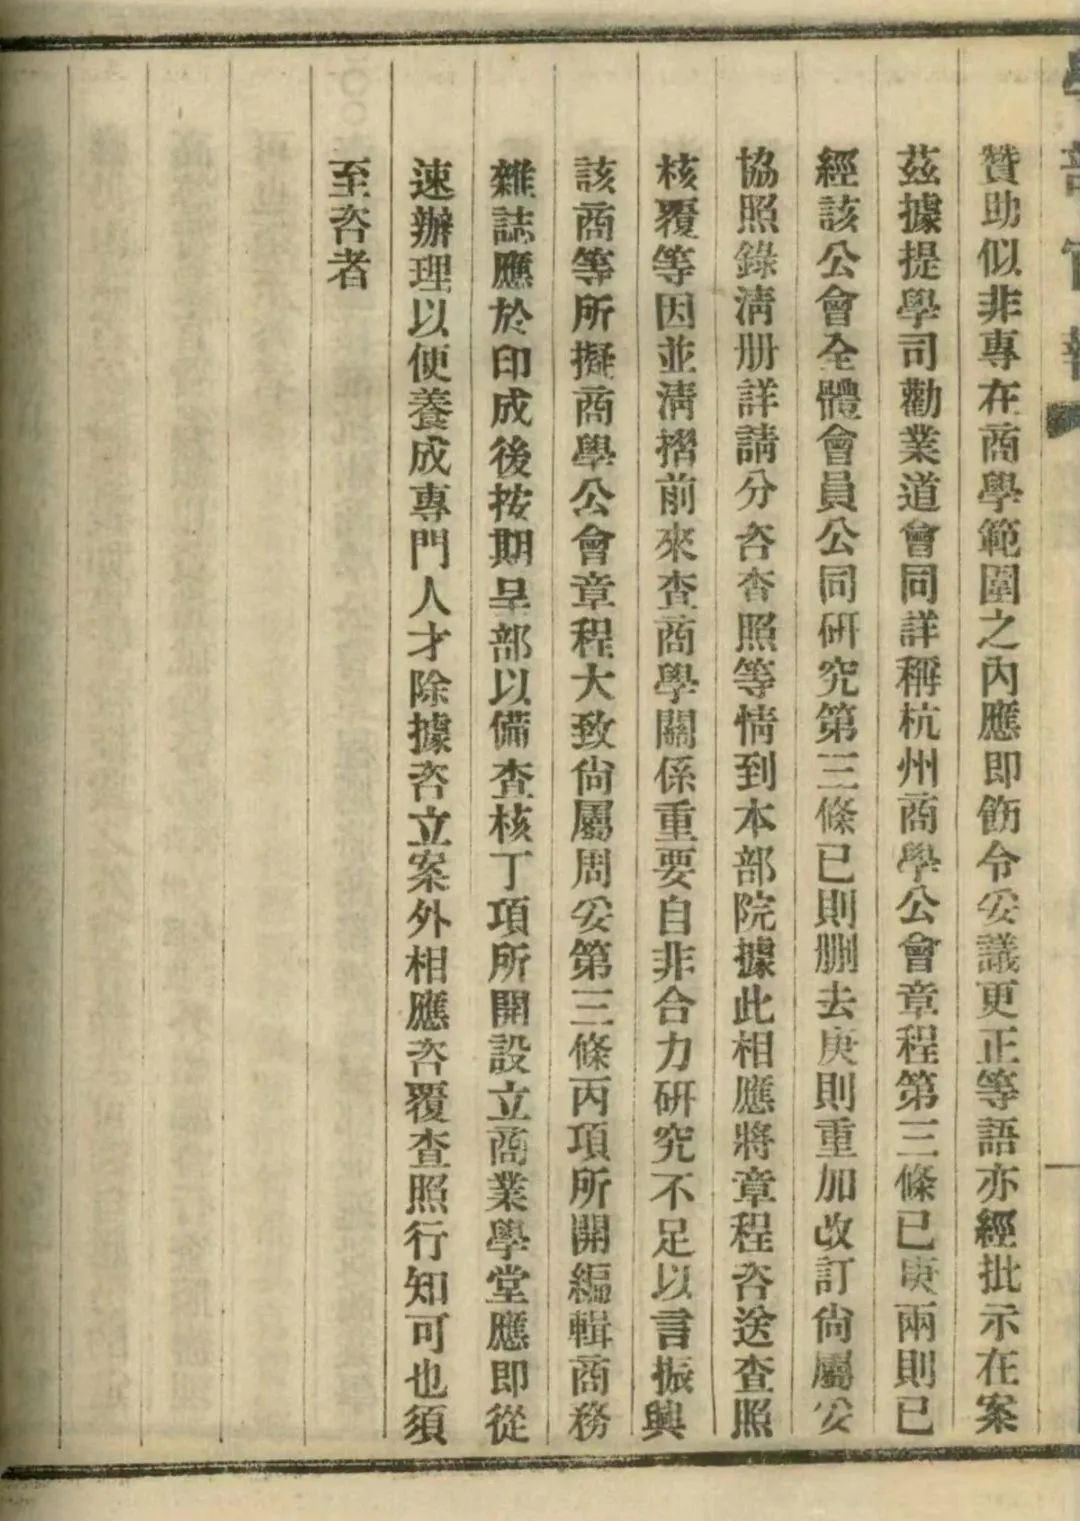 學部官報
贊助似非專在商學範圍之內應即飭令妥議更正等語亦經批示在案
茲據提學司勸業道會同詳稱杭州商學公會章程第三條已庚兩則已
經該公會全體會員公同研究第三條已則删去庚則重加改訂尙屬妥
協照錄淸册詳請分咨查照等情到本部院據此相應將章程咨送查照
核覆等因並淸摺前來查商學關係重要自非合力研究不足以言振興
該商等所擬商學公會章程大致尙屬周妥第三條丙項所開編輯商務
雜誌應於印成後按期呈部以備查核丁項所開設立商業學堂應即從
速辦理以便養成專門人才除據咨立案外相應咨覆查照行知可也須
至咨者